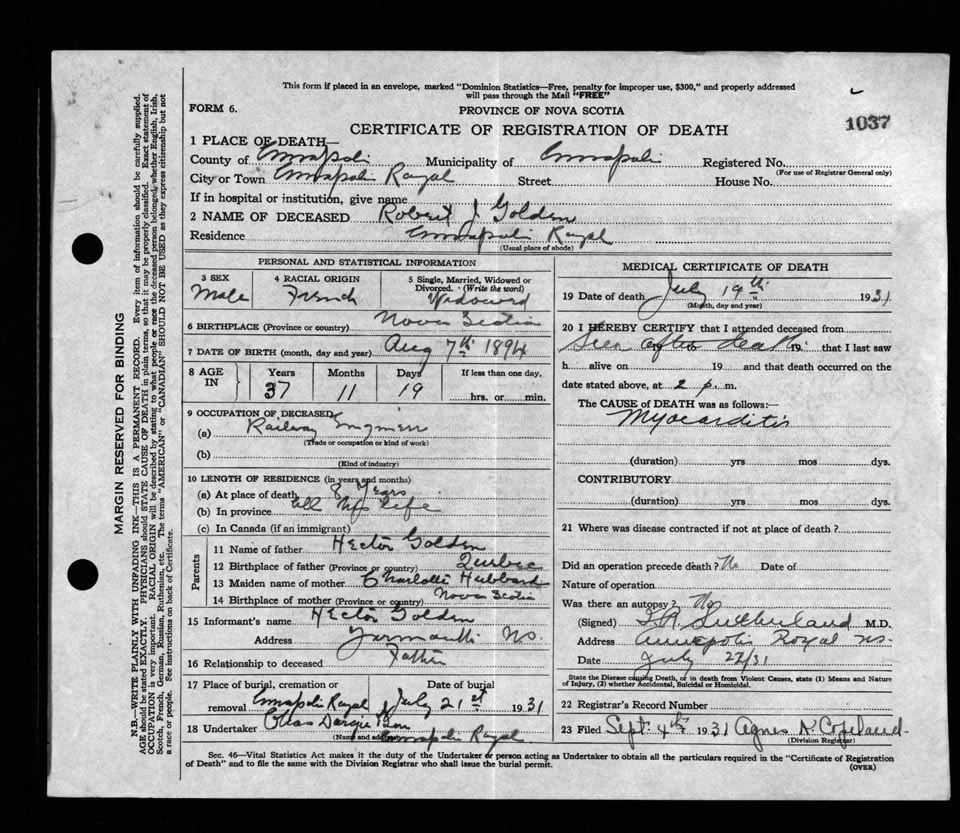 This form if placed in an envelope, marked "Dominion Statistics—Free, penalty for improper use, $300," and properly addressed
will pass through the Mail "FREE"
FORM 6.
PROVINCE OF NOVA SCOTIA
1037
CERTIFICATE OF REGISTRATION OF DEATH
1 PLACE OF DEATH—
County of Annapolis Municipality of Annapolis Registered No.
(For use of Registrar General only)
City or Town Annapolis Royal Street House No.
If in hospital or institution, give name
2 NAME OF DECEASED Robert J Golden
Residence Annapolis Royal
(Usual place of abode)
PERSONAL AND STATISTICAL INFORMATION
3 SEX 4 RACIAL ORIGIN 5 Single, Married, Widowed or
Divorced. (Write the word)
Male French Widowed
6 BIRTHPLACE (Province or country) Nova Scotia
7 DATE OF BIRTH (month, day and year) Aug 7th 1894
8 AGE IN Years Months Days If less than one day,
37 11 19 hrs. or min.
9 OCCUPATION OF DECEASED
(a) Railway Engineer
(Trade or occupation or kind of work)
(b)
(Kind of industry)
10 LENGTH OF RESIDENCE (in years and months)
(a) At place of death 8 Years
(b) In province all his life
(c) In Canada (if an immigrant)
Parents
11 Name of father Hector Golden
12 Birthplace of father (Province or country) Quebec
13 Maiden name of mother Charlotte Hubbard
14 Birthplace of mother (Province or country) Nova Scotia
15 Informant's name Hector Golden
Address Yarmouth NS.
16 Relationship to deceased Father
17 Place of burial, cremation or removal Date of burial
Annapolis Royal July 21st 1931
18 Undertaker Chas Dargie & Son
(Name and address) Annapolis Royal
MEDICAL CERTIFICATE OF DEATH
19 Date of death July 19th 1931
(Month, day and year)
20 I HEREBY CERTIFY that I attended deceased from
Seen after death 19 that I last saw
h alive on 19 and that death occurred on the
date stated above, at 2 p. m.
The CAUSE of DEATH was as follows:—
Myocarditis
(duration) yrs mos dys.
CONTRIBUTORY
(duration) yrs mos dys.
21 Where was disease contracted if not at place of death?
Did an operation precede death? No Date of
Nature of operation
Was there an autopsy? No
(Signed) Sutherland M.D.
Address Annapolis Royal NS.
Date July 22/31
State the Disease causing Death, or in death from Violent Causes, state (1) Means and Nature
of Injury, (2) whether Accidental, Suicidal or Homicidal.
22 Registrar's Record Number
23 Filed Sept 4th 1931 Agnes N Copeland
(Division Registrar)
Sec. 46—Vital Statistics Act makes it the duty of the Undertaker or person acting as Undertaker to obtain all the particulars required in the "Certificate of Registration
of Death" and to file the same with the Division Registrar who shall issue the burial permit.
(OVER)
MARGIN RESERVED FOR BINDING
N.B.—WRITE PLAINLY WITH UNFADING INK—THIS IS A PERMANENT RECORD. Every item of information should be carefully supplied.
AGE should be stated EXACTLY. PHYSICIANS should STATE CAUSE OF DEATH in plain terms, so that it may be properly classified. Exact statement of
OCCUPATION is very important. RACIAL ORIGIN will be described by stating to what people or race the deceased person belonged, whether English, Irish,
Scotch, French, German, Russian, Ruthenian, etc. The terms "AMERICAN" or "CANADIAN" SHOULD NOT BE USED as they express citizenship but not
a race or people. See instructions on back of Certificate.